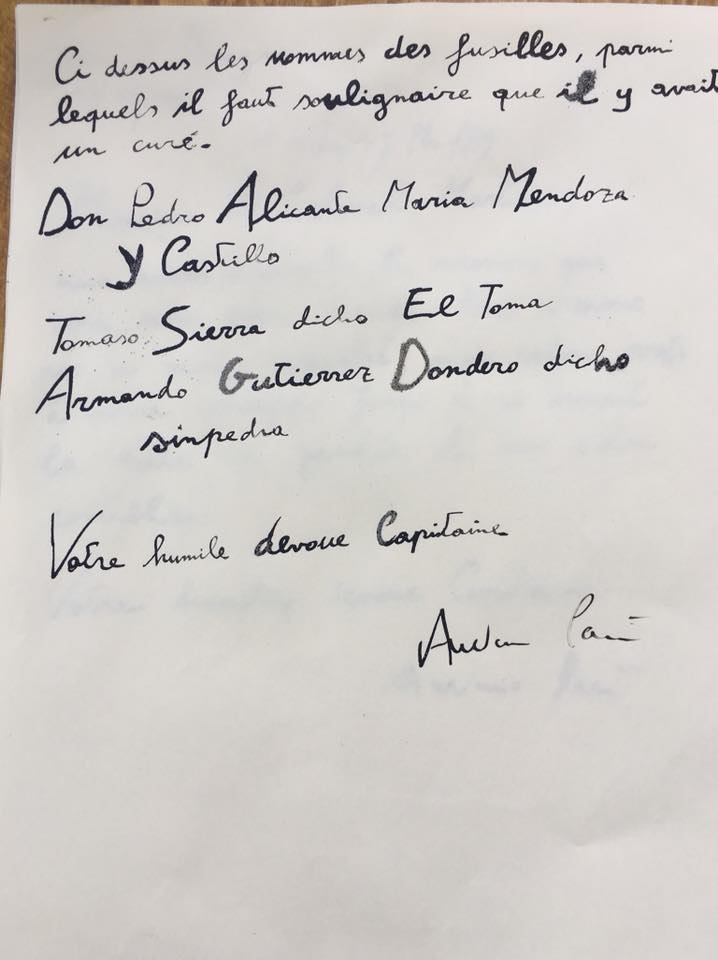 Ci dessus les nommes des fusilles, parmi
lequels il faut soulignaire que il y avait
un curé.
Don Pedro Alicante Maria Mendoza
y Castillo
Tomaso Sierra dicho El Toma
Armando Gutierrez Dondero dicho
sinpedra
Votre humile devoue Capitaine